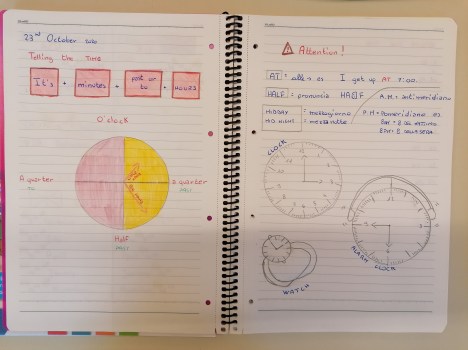 23rd October 2020
Telling the TIME
It's + minutes + past or to + HOURS
O'clock
A quarter
TO
a quarter
PAST
Half
PAST
Attention!
AT = alle es I get up AT 7:00.
HALF = pronuncia HALF
A.M = antimeridiano
MIDDAY = mezzogiorno
MIDNIGHT = mezzanotte
P.M = Pomeridiano es
8AM = 8 del mattino
8PM = 8 della sera
CLOCK
ALARM CLOCK
WATCH